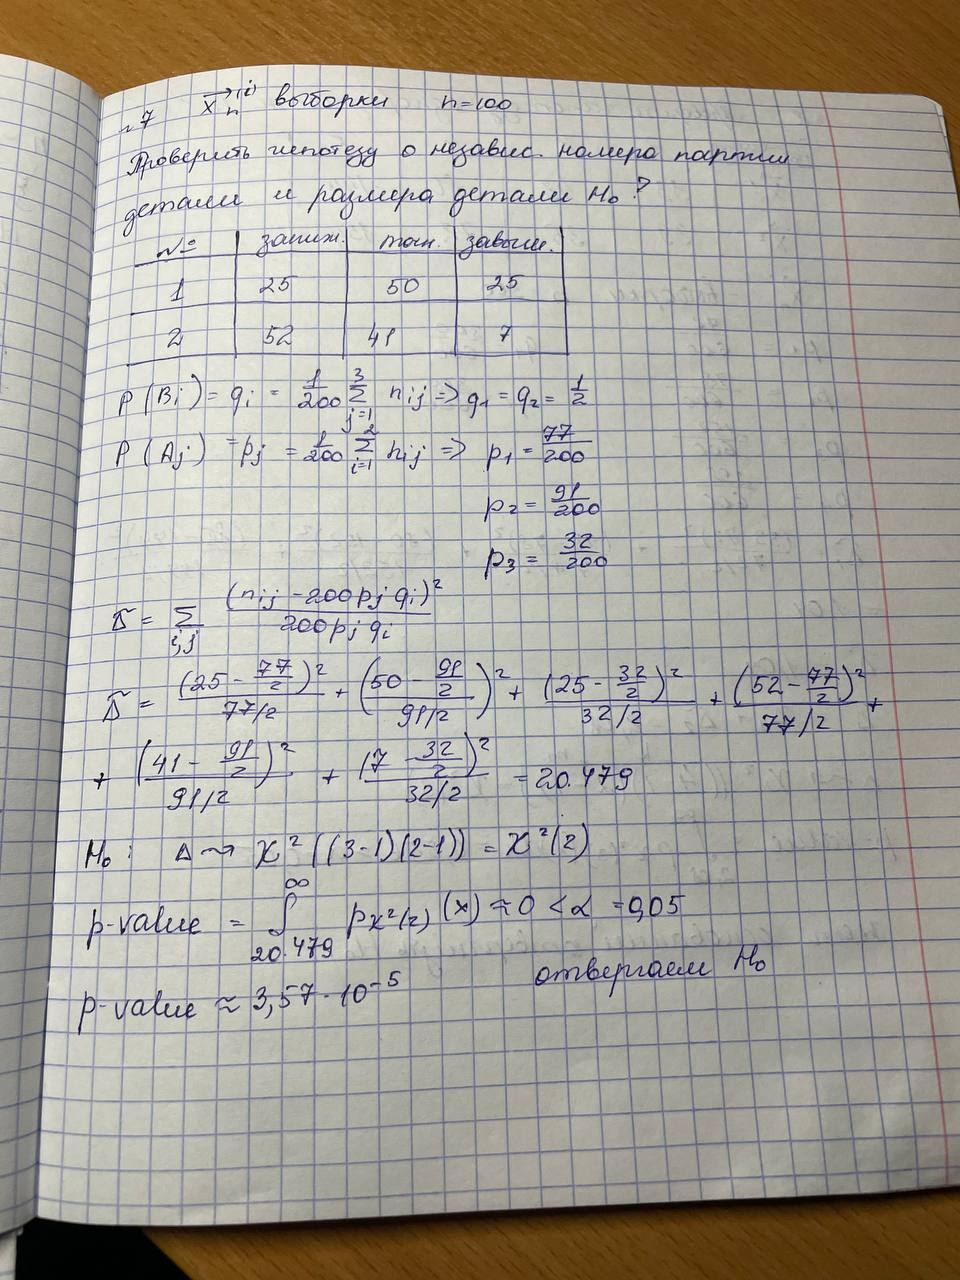 №7 →Xn(i) выборки n=100
Проверить гипотезу о независ. номера партии
детали и размера детали H₀?
№ заниж. точн. завыш.
1 25 50 25
2 52 41 7
P(Bi) = qi = 1/200 Σ(j=1..3) nij => q₁ = q₂ = 1/2
P(Aj) = pj = 1/200 Σ(i=1..2) nij => p₁ = 77/200
p₂ = 91/200
p₃ = 32/200
Δ̃ = Σ(i,j) (nij - 200pjqi)²/200pjqi
Δ̃ = (25 - 77/2)²/77/2 + (50 - 91/2)²/91/2 + (25 - 32/2)²/32/2 + (52 - 77/2)²/77/2 +
+ (41 - 91/2)²/91/2 + (7 - 32/2)²/32/2 = 20.479
H₀: Δ ⇝ χ²((3-1)(2-1)) = χ²(2)
p-value = ∫(20.479..∞) pχ²(2)(x) ≈ 0 < α = 0,05
p-value ≈ 3,57·10⁻⁵ отвергаем H₀